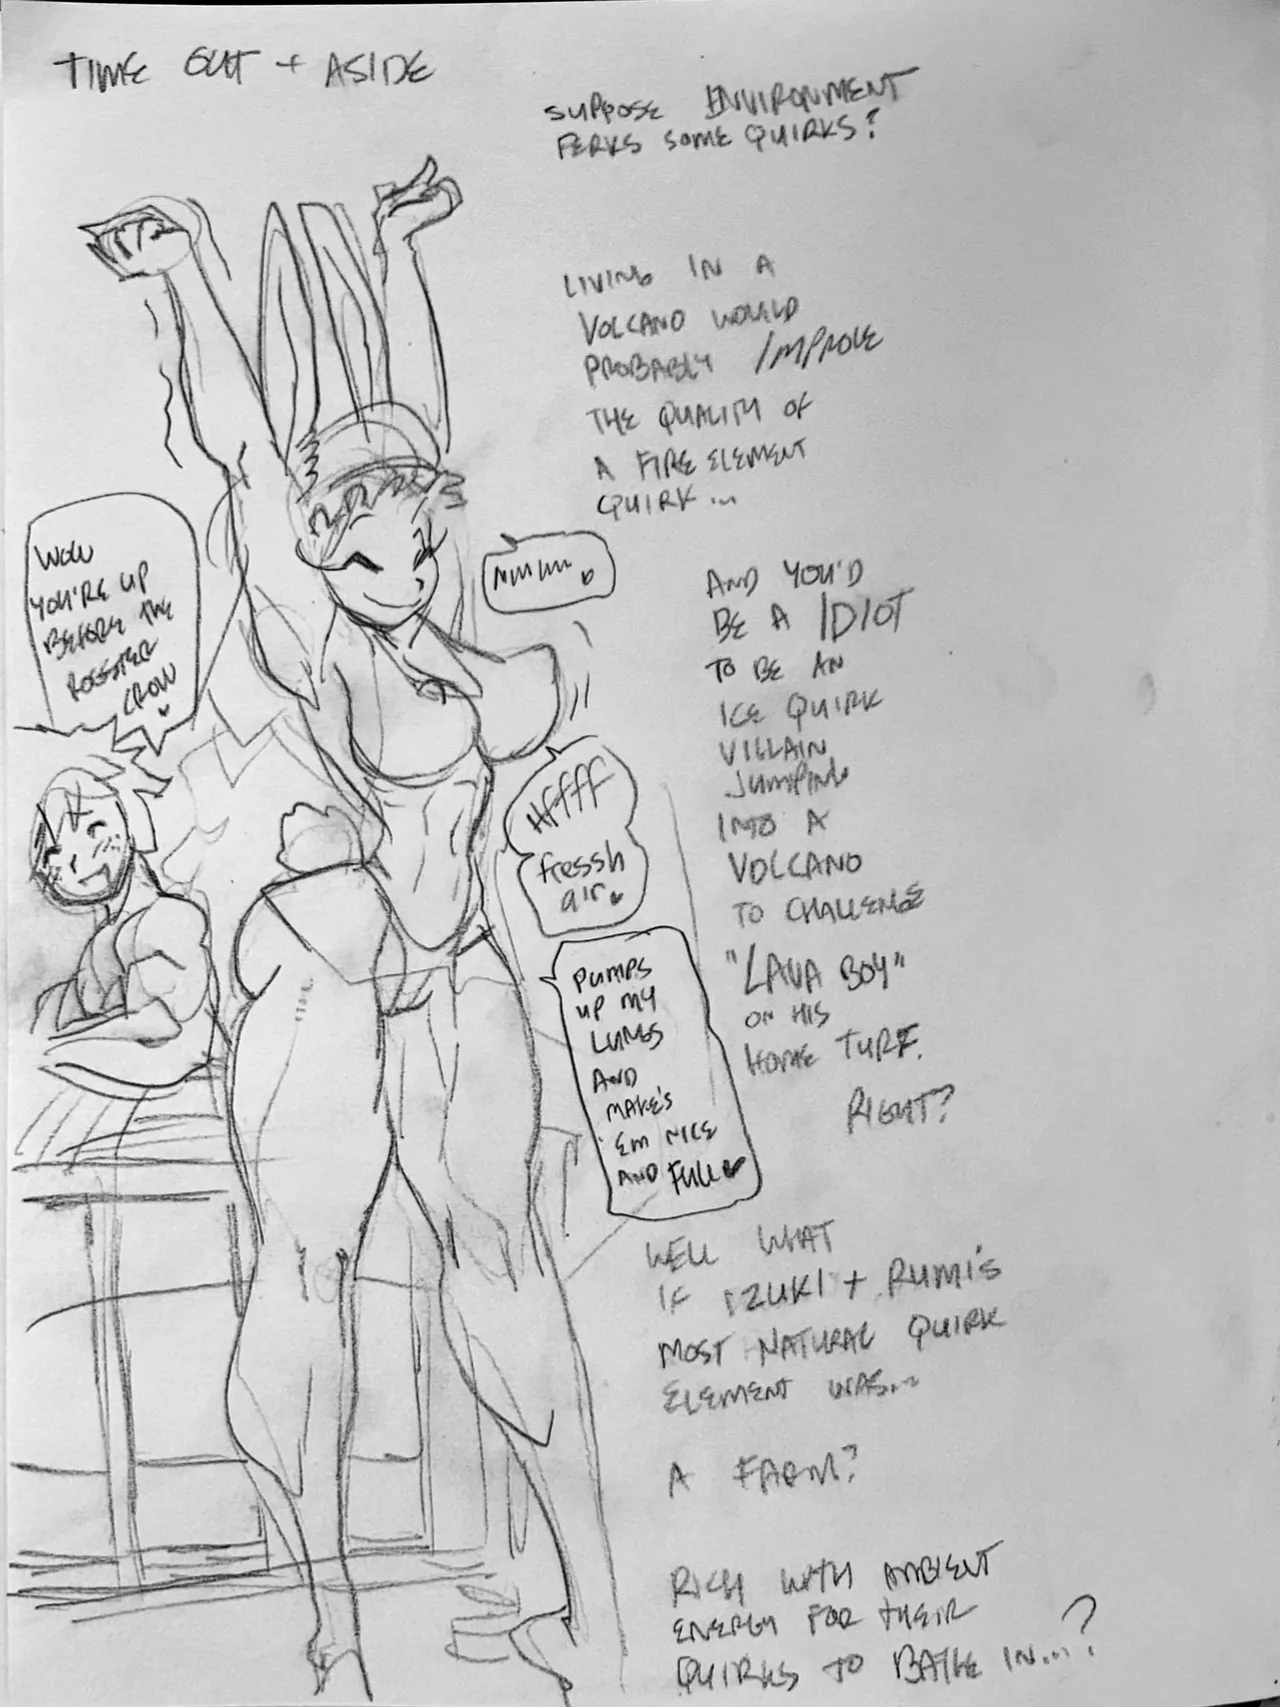 TIME OUT + ASIDE
SUPPOSE ENVIRONMENT
PERKS SOME QUIRKS?
LIVING IN A
VOLCANO WOULD
PROBABLY IMPROVE
THE QUALITY OF
A FIRE ELEMENT
QUIRK...
AND YOU'D
BE A IDIOT
TO BE AN
ICE QUIRK
VILLAIN
JUMPING
INTO A
VOLCANO
TO CHALLENGE
"LAVA BOY"
ON HIS
HOME TURF.
RIGHT?
WELL WHAT
IF IZUKI + RUMI'S
MOST NATURAL QUIRK
ELEMENT WAS...
A FARM?
RICH WITH AMBIENT
ENERGY FOR THEIR
QUIRKS TO BATHE IN...?
WOW
YOU'RE UP
BEFORE THE
ROOSTER
CROW
MMMM
HFFFF
fresssh
air
PUMPS
UP MY
LUNGS
AND
MAKE'S
'EM NICE
AND FULL